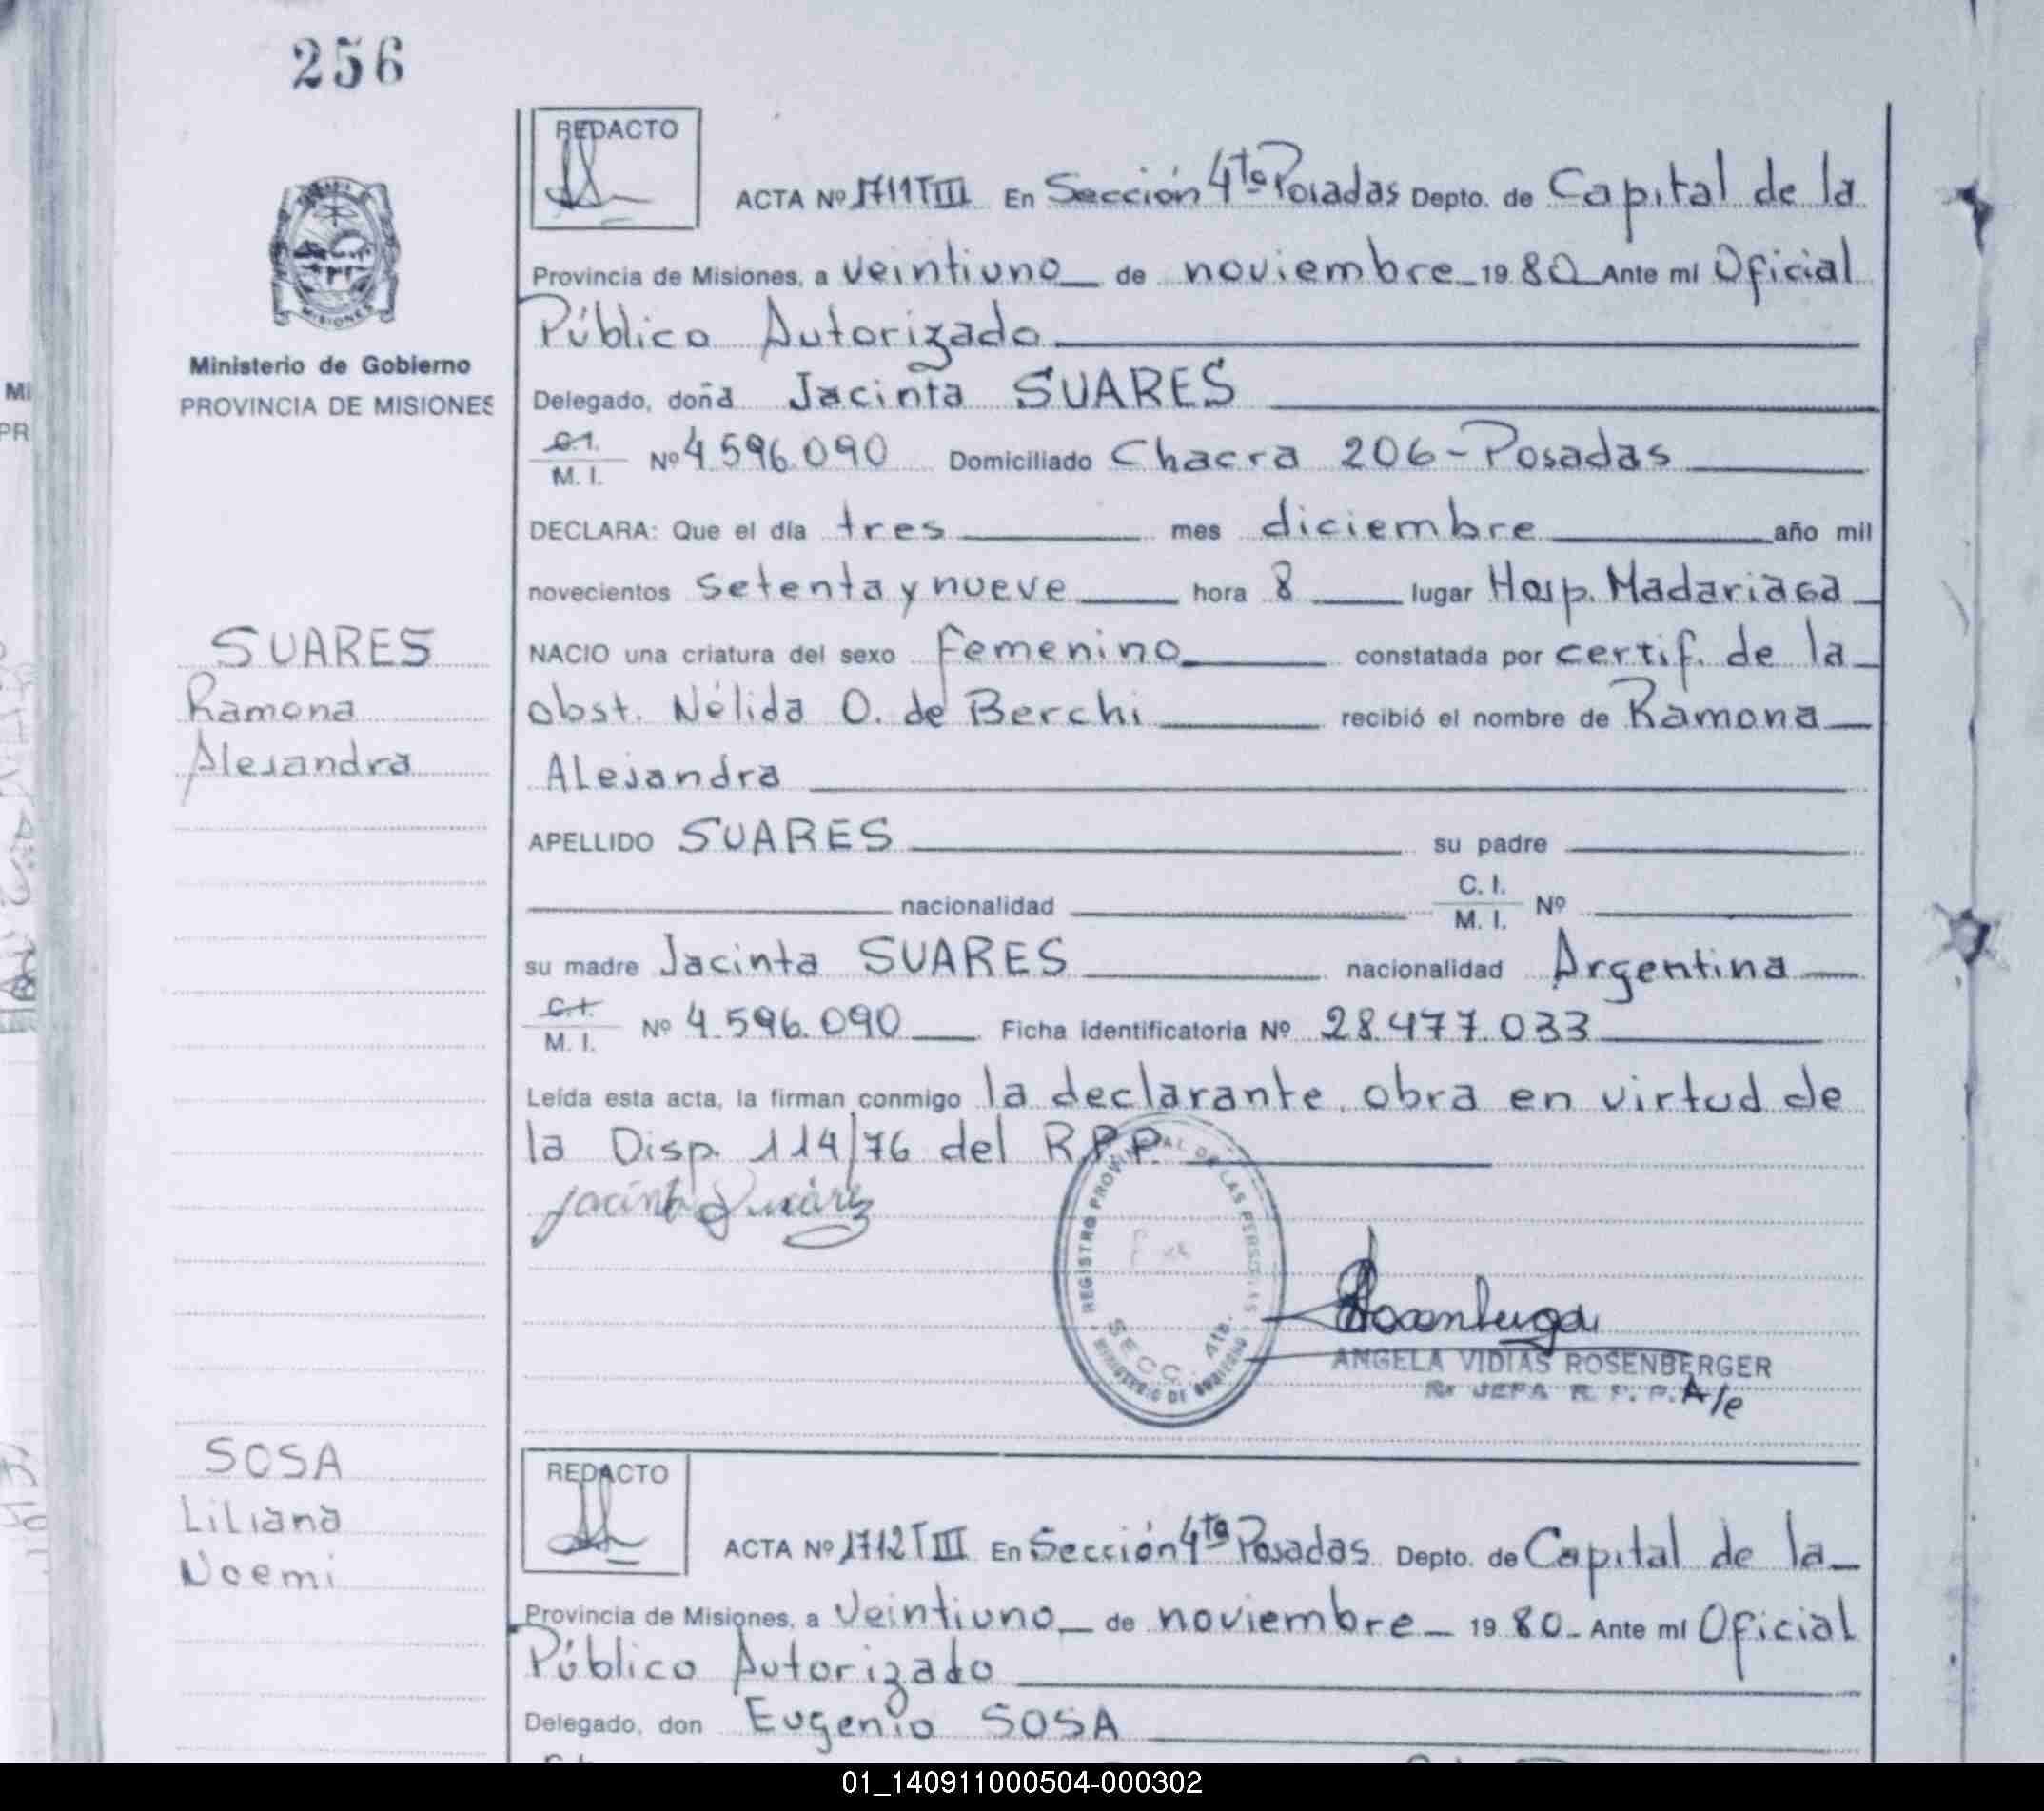 256
REDACTO
ACTA Nº 1711 T III En Sección 4ta Posadas Depto. de Capital de la
Provincia de Misiones, a veintiuno de noviembre 19 80 Ante mí Oficial
Público Autorizado
Ministerio de Gobierno
PROVINCIA DE MISIONES
Delegado, doña Jacinta SUARES
C.I. M. I. Nº 4.596.090 Domiciliado Chacra 206-Posadas
DECLARA: Que el día tres mes diciembre año mil
novecientos setenta y nueve hora 8 lugar Hosp. Madariaga
SUARES
NACIO una criatura del sexo Femenino constatada por certif. de la
Ramona
obst. Nélida O. de Berchi recibió el nombre de Ramona
Alejandra
Alejandra
APELLIDO SUARES su padre
nacionalidad C. I. M. I. Nº
su madre Jacinta SUARES nacionalidad Argentina
C.I. M. I. Nº 4.596.090 Ficha identificatoria Nº 28.477.033
Leída esta acta, la firman conmigo la declarante, obra en virtud de
la Disp. 114/76 del R.P.P.
Jacinta Suárez
REGISTRO PROVINCIAL DE LAS PERSONAS
SECC. 4ta.
MINISTERIO DE GOBIERNO
ANGELA VIDIAS ROSENBERGER
JEFA R. P. P. A/e
SOSA
Liliana
Noemi
REDACTO
ACTA Nº 1712 T III En Sección 4ta Posadas Depto. de Capital de la
Provincia de Misiones, a Veintiuno de noviembre 19 80 Ante mí Oficial
Público Autorizado
Delegado, don Eugenio SOSA
01_140911000504-000302